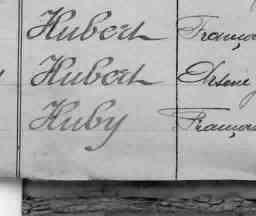 Hubert Franço
Hubert Arsène
Huby Franço